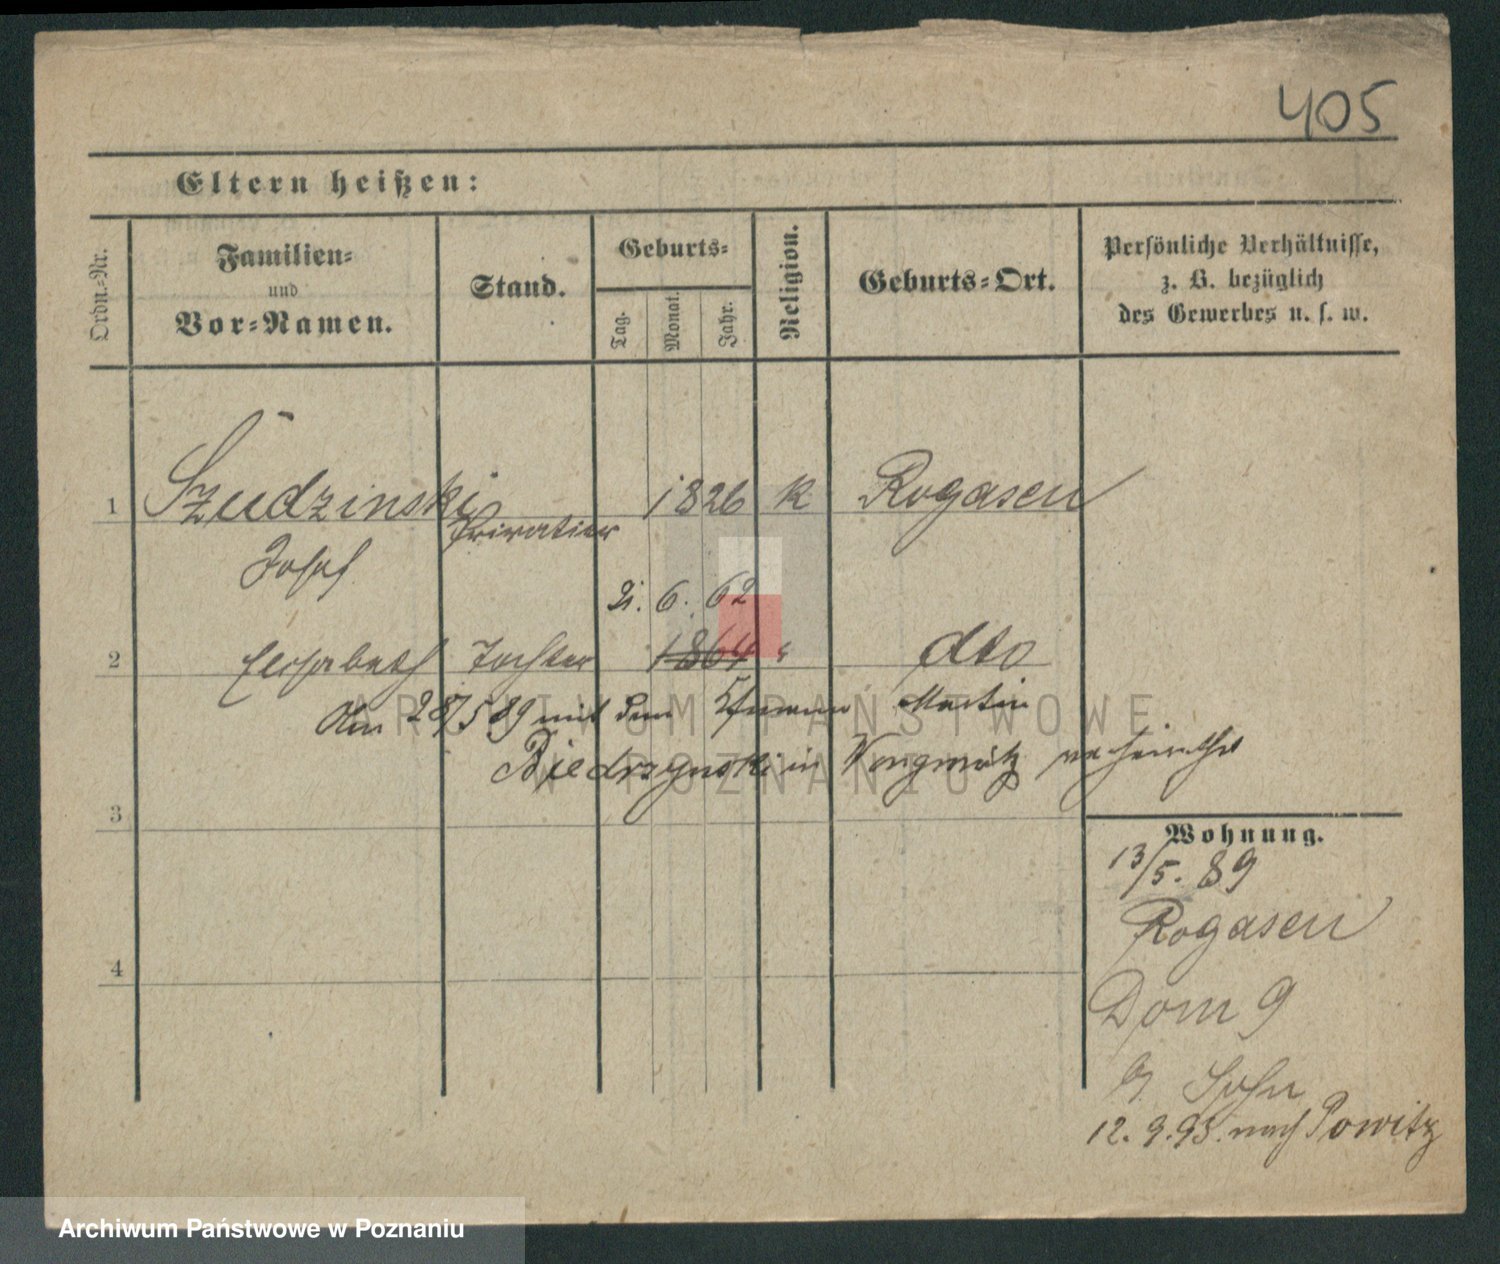 405
Eltern heißen:
Ordn.-Nr.
Familien-
und
Vor-Namen.
Stand.
Geburts-
Tag.
Monat.
Jahr.
Religion.
Geburts-Ort.
Persönliche Verhältnisse,
z. B. bezüglich
des Gewerbes u. s. w.
1 Szudzinski 1826 K Rogasen
Privatier
Josef
21. 6. 62
2 Elisabeth Tochter 1864 " dto
Am 28/5 89 mit dem Martin
Biedrzynski in Wongrowitz verheirathet
3
Wohnung.
13/5. 89
Rogasen
4
Dom 9
Sohn
12. 9. 93. nach Powitz
ARCHIWUM PAŃSTWOWE
W POZNANIU
Archiwum Państwowe w Poznaniu